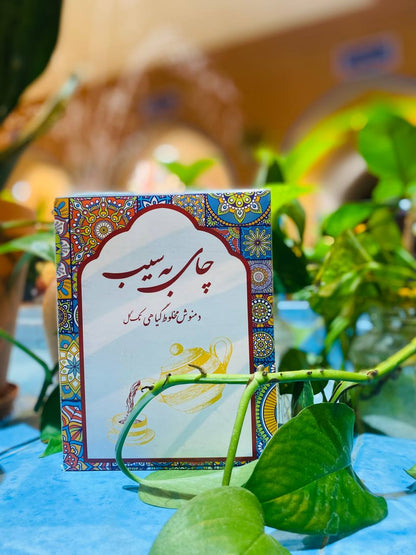 چای به سیب
دمنوش مخلوط گیاهی نیک گل